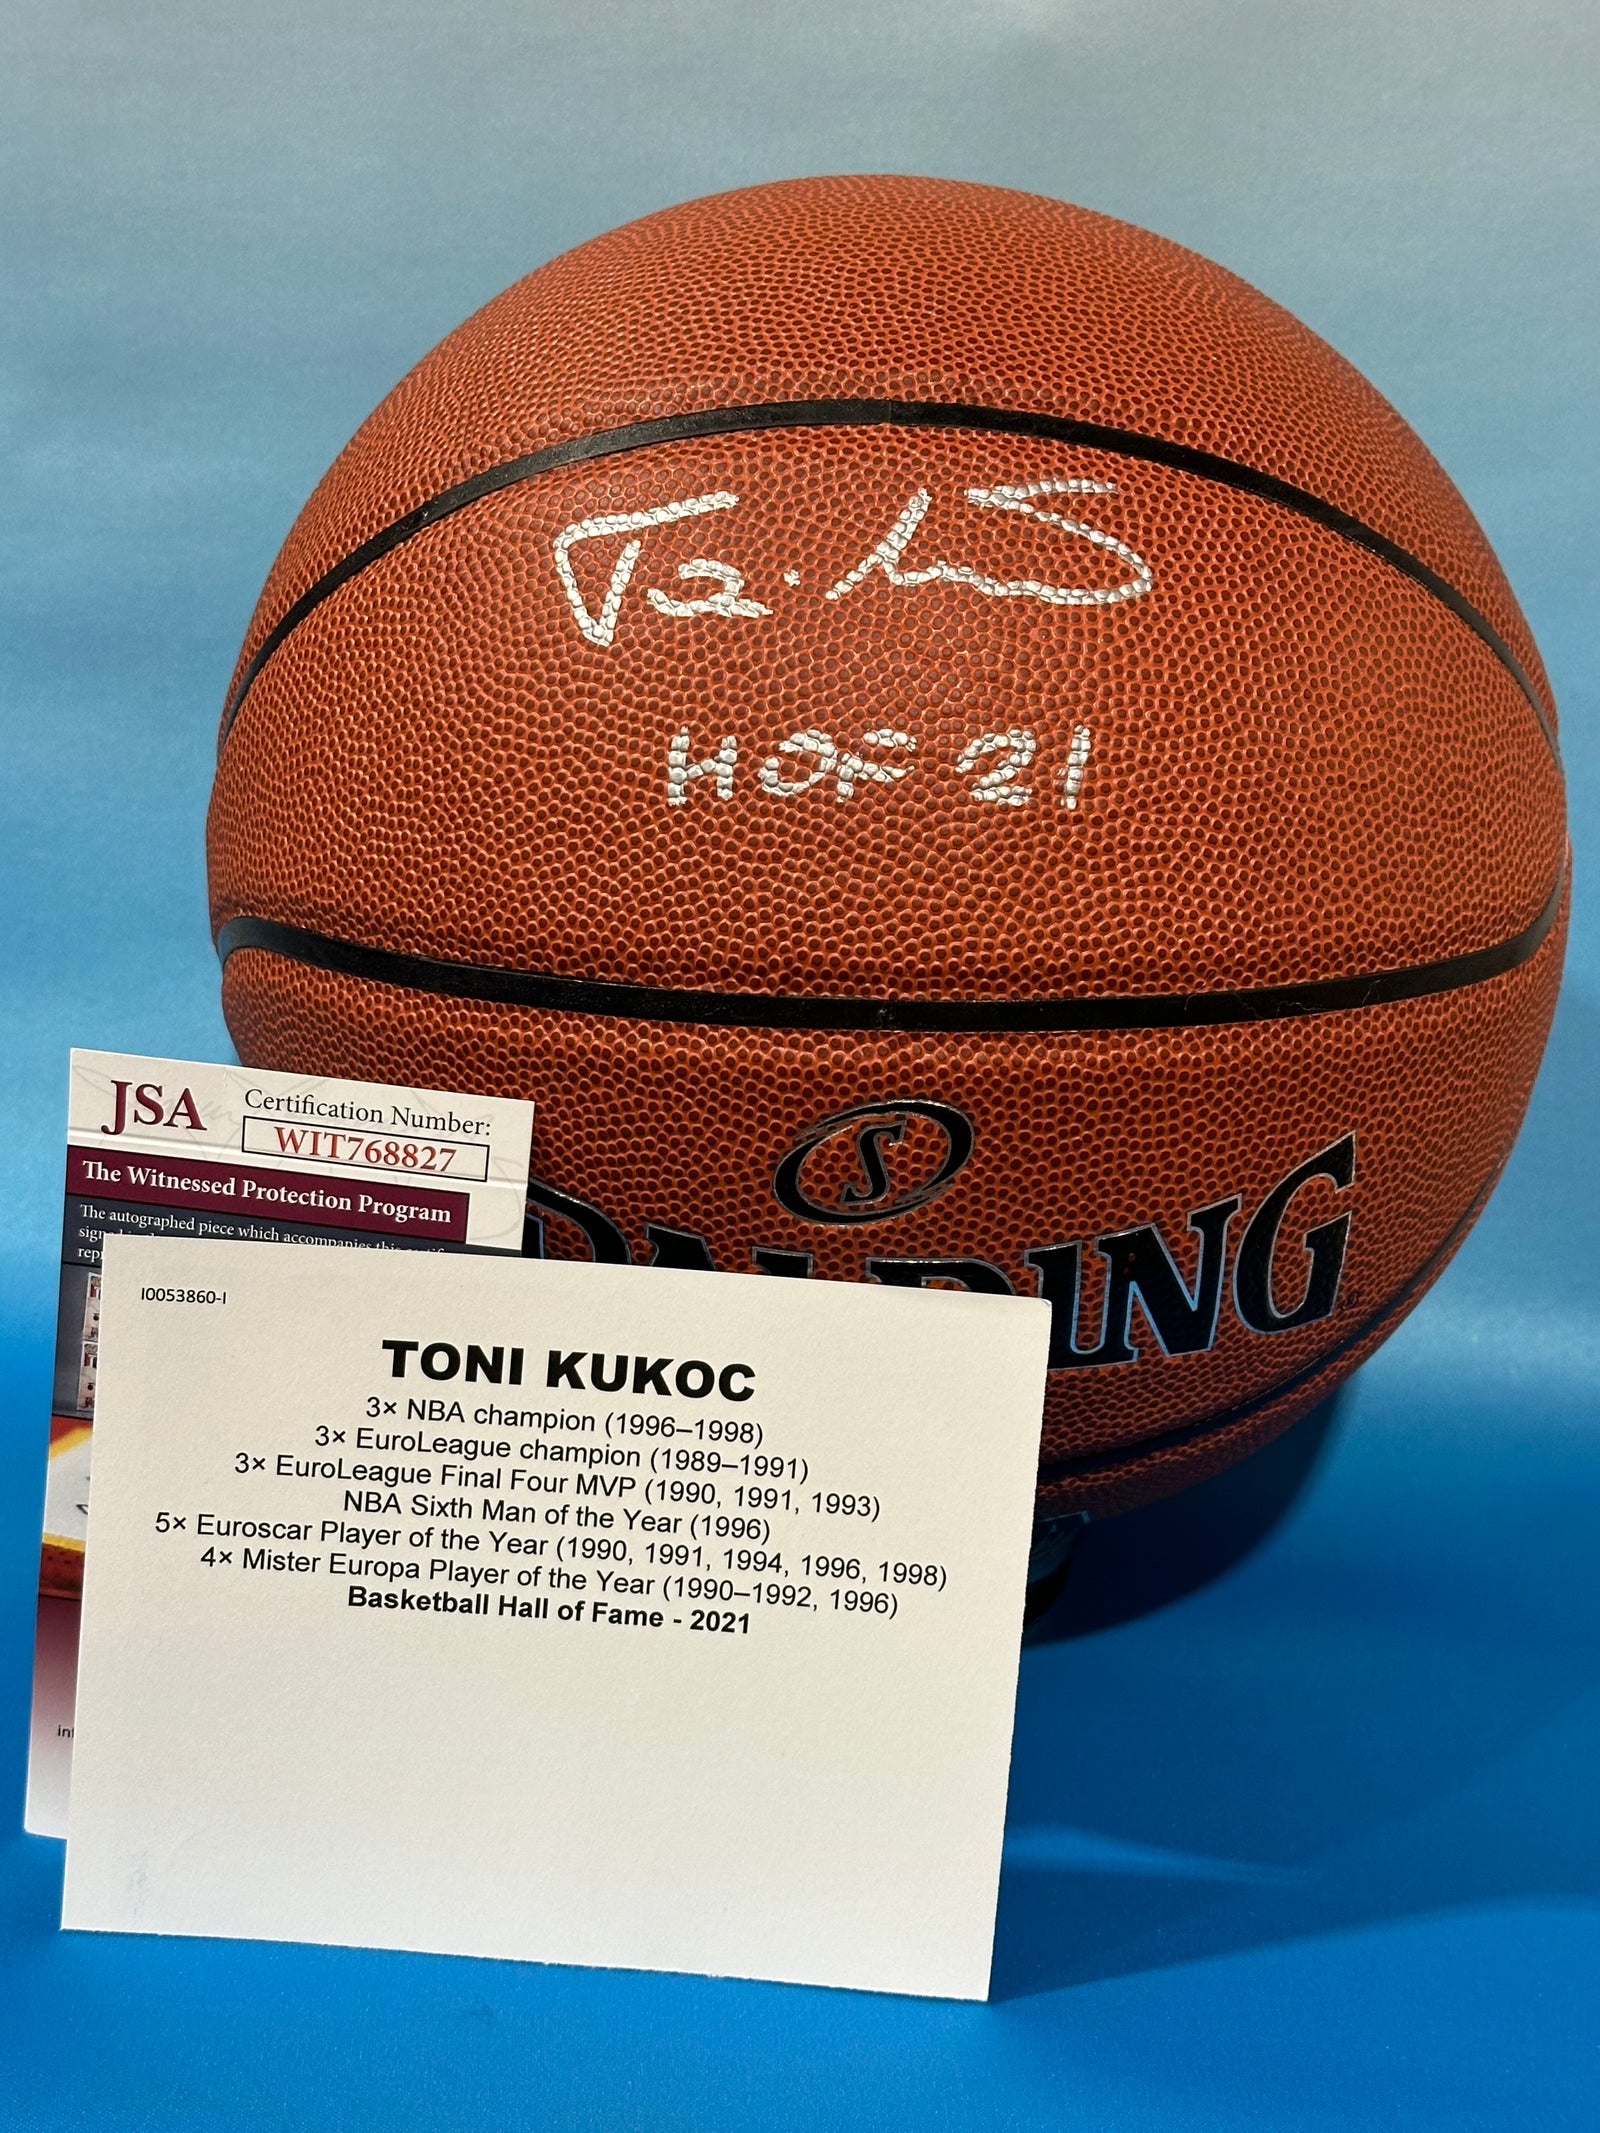 HOF 21
S
SPALDING
JSA
Certification Number:
WIT768827
The Witnessed Protection Program
The autographed piece which accompanies this
I0053860-I
TONI KUKOC
3× NBA champion (1996–1998)
3× EuroLeague champion (1989–1991)
3× EuroLeague Final Four MVP (1990, 1991, 1993)
NBA Sixth Man of the Year (1996)
5× Euroscar Player of the Year (1990, 1991, 1994, 1996, 1998)
4× Mister Europa Player of the Year (1990–1992, 1996)
Basketball Hall of Fame - 2021